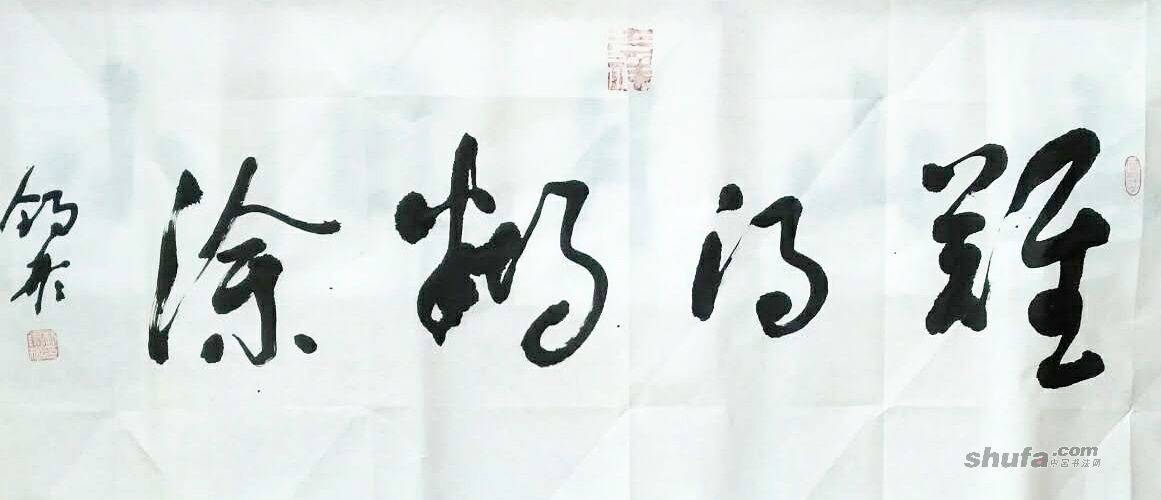 難得糊涂
shufa.com
中国书法网